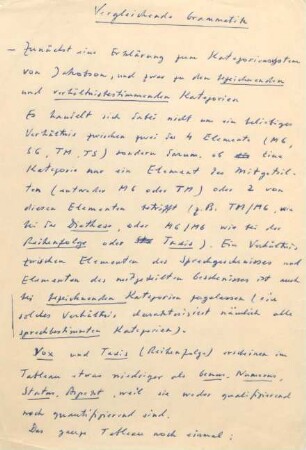 Vergleichende Grammatik
— Zunächst eine Erklärung zum Kategoriensystem
von Jakobson, und zwar zu den bezeichnenden
und verhältnisbestimmenden Kategorien
Es handelt sich dabei nicht um ein beliebiges
Verhältnis zwischen zwei der 4 Elemente (MG,
SG, TM, TS) sondern darum, ob eine
Kategorie nur ein Element des Mitgeteil-
ten (entweder MG oder TM) oder 2 von
diesen Elementen betrifft (z.B. TM/MG, wie
bei der Diathese, oder MG/MG wie bei der
Reihenfolge oder Taxis). Ein Verhältnis
zwischen Elementen des Sprechgeschehnisses und
Elementen des mitgeteilten Geschehnisses ist auch
bei bezeichnenden Kategorien zugelassen (ein
solches Verhältnis charakterisiert nämlich alle
sprechbestimmten Kategorien).
Vox und Taxis (Reihenfolge) erscheinen im
Tableau etwas niedriger als Genus, Numerus,
Status, Aspekt, weil sie weder qualifizierend
noch quantifizierend sind.
Das ganze Tableau noch einmal: